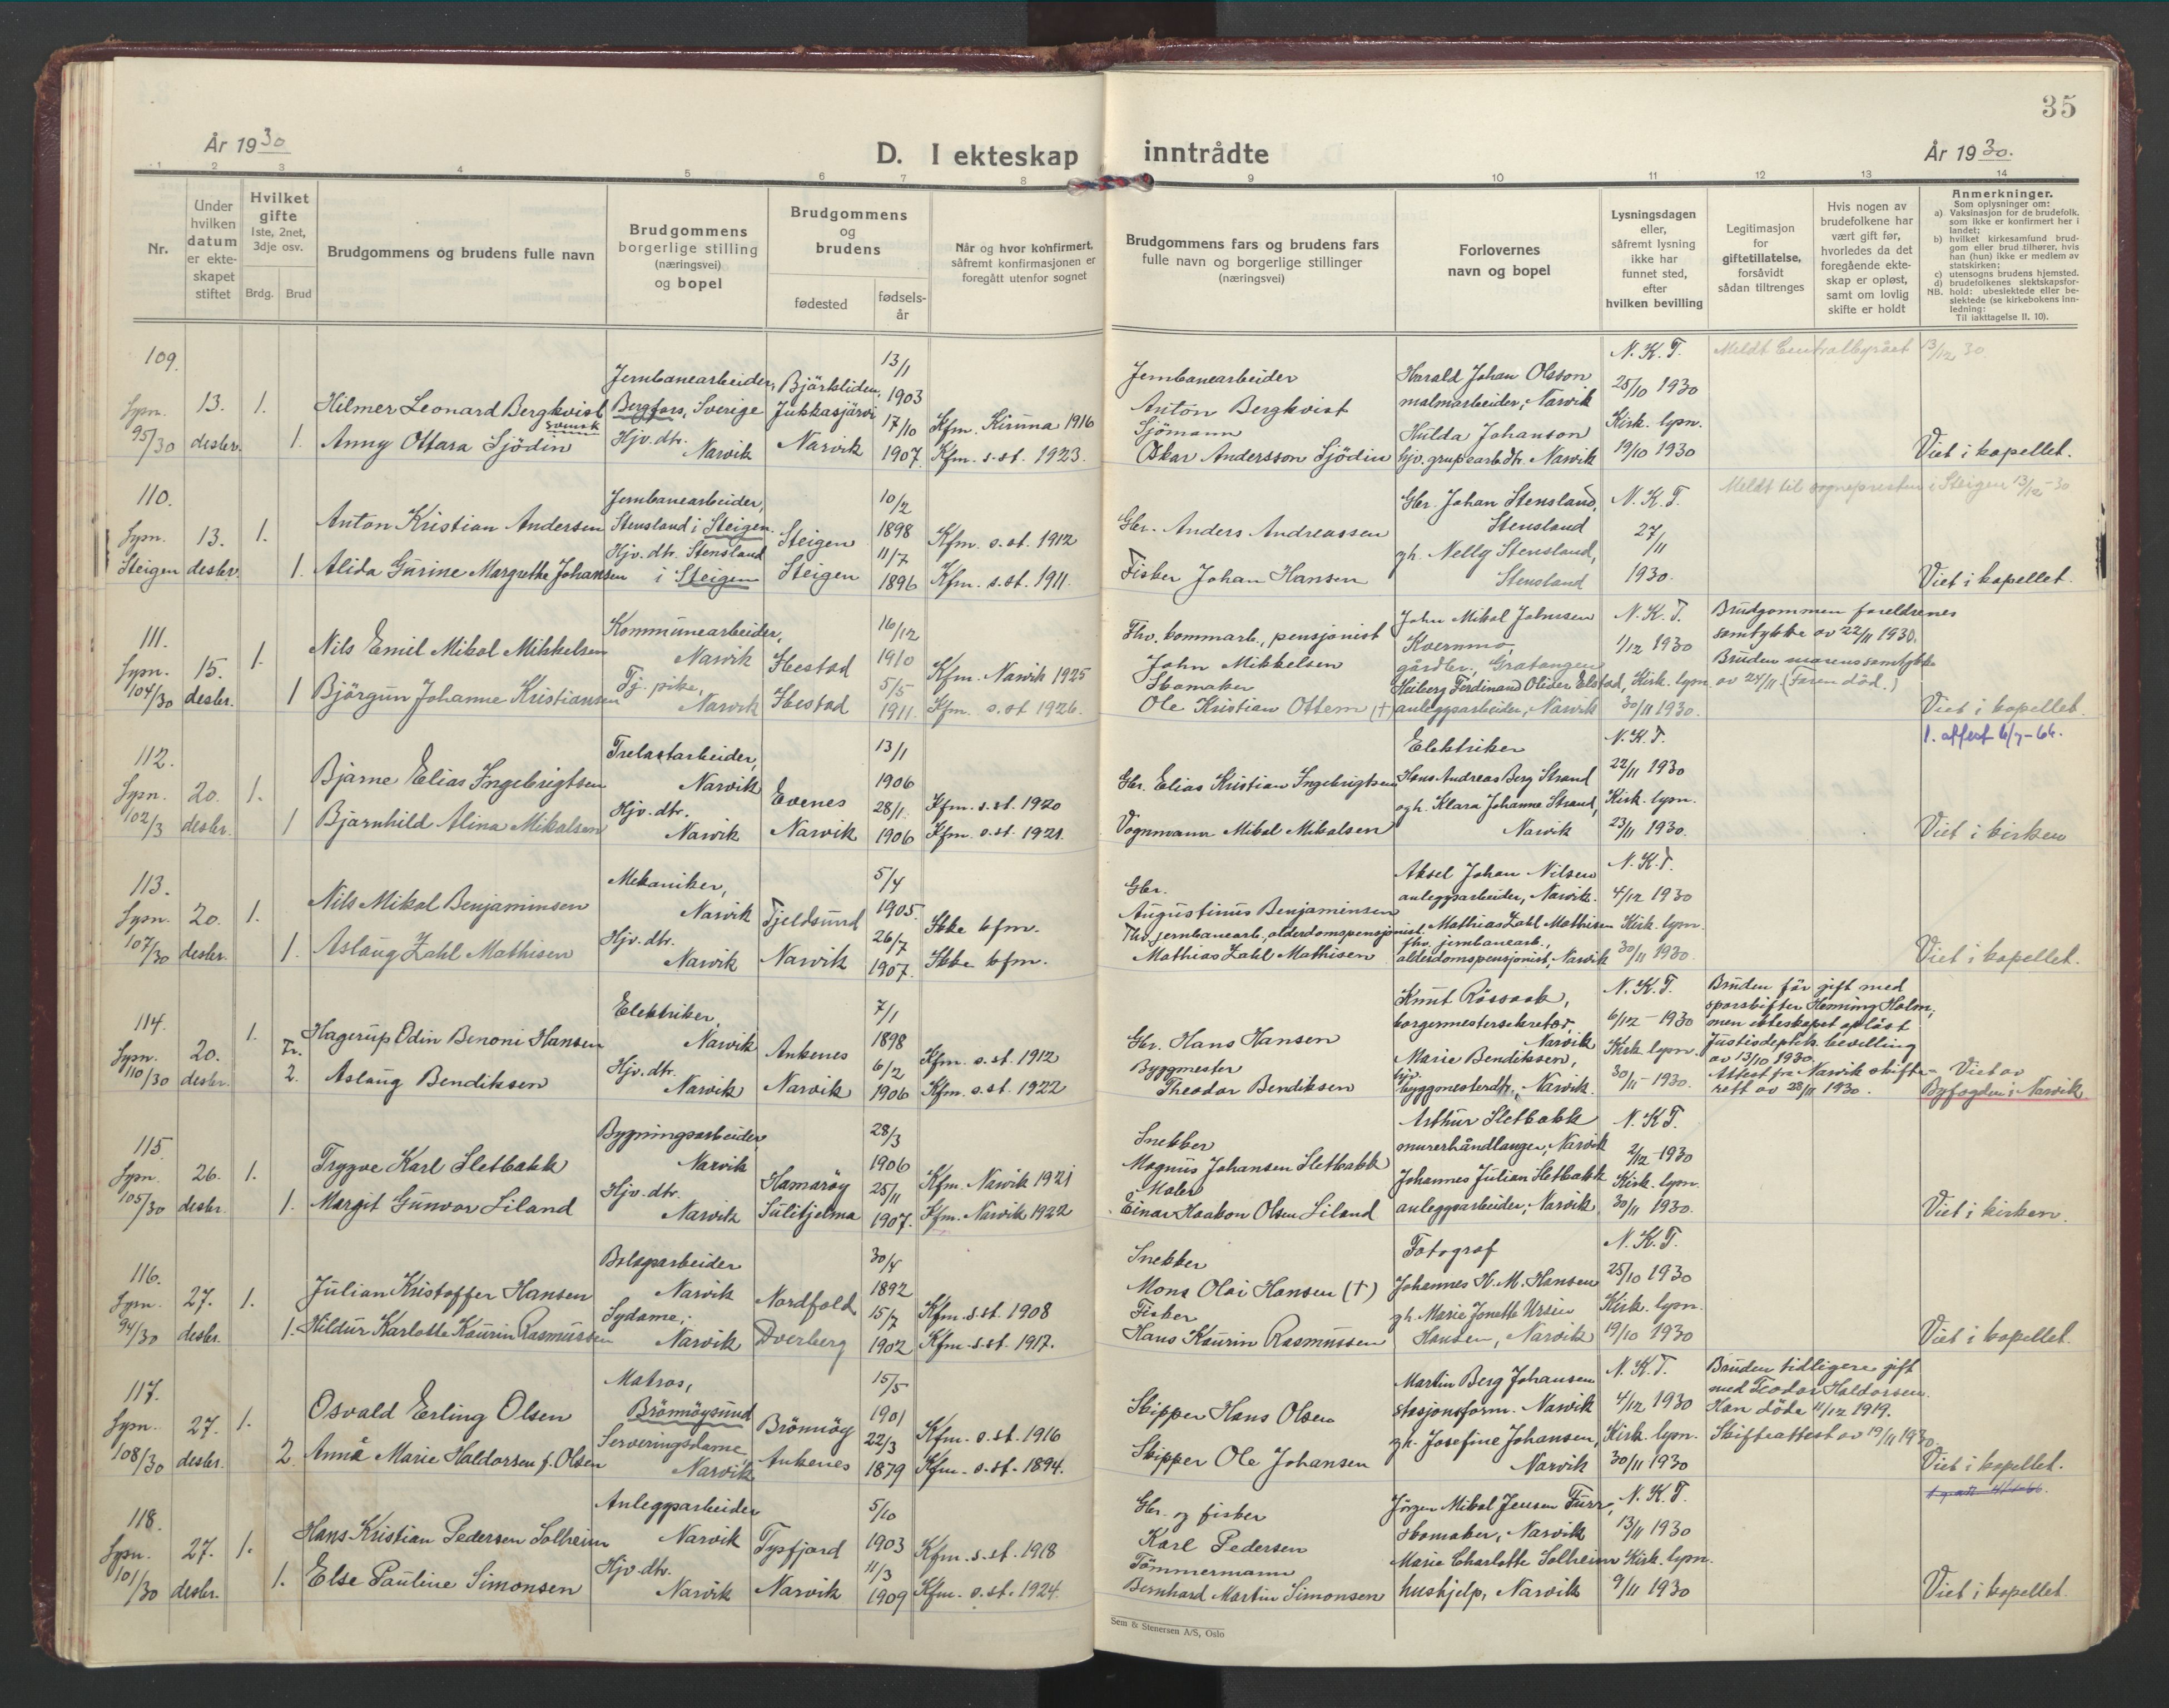 35
År 1930
D. I ekteskap inntrådte
År 1930.
1 2 3 4 5 6 7 8 9 10 11 12 13 14
Nr.
Under hvilken datum er ekteskapet stiftet
Hvilket gifte 1ste, 2net, 3dje osv.
Brdg. Brud
Brudgommens og brudens fulle navn
Brudgommens borgerlige stilling (næringsvei) og bopel
Brudgommens og brudens
fødested
fødselsår
Når og hvor konfirmert, såfremt konfirmasjonen er foregått utenfor sognet
Brudgommens fars og brudens fars fulle navn og borgerlige stillinger (næringsvei)
Forlovernes navn og bopel
Lysningsdagen eller, såfremt lysning ikke har funnet sted, efter hvilken bevilling
Legitimasjon for giftetillatelse, forsåvidt sådan tiltrenges
Hvis nogen av brudefolkene har vært gift før, hvorledes da det foregående ekteskap er opløst, samt om lovlig skifte er holdt
Anmerkninger.
Som oplysninger om:
a) Vaksinasjon for de brudefolk, som ikke er konfirmert her i landet;
b) hvilket kirkesamfund brudgom eller brud tilhører, hvis han (hun) ikke er medlem av statskirken;
c) utensogns brudens hjemsted.
d) brudefolkenes slektskapsforhold: ubeslektede eller beslektede (se kirkebokens innledning:
NB.
Til iakttagelse II, 10).
109.
Lysn. 95/30
13. desbr.
1.
Hilmer Leonard Bergkvist
svensk
Jernbanearbeider, Bergfors, Sverige
Bjärkliden, Jukkasjärvi
13/1 1903
Kfm. Kiruna 1916
Jernbanearbeider
Anton Bergkvist
Harald Johan Olsson
malmarbeider, Narvik
N. K. T.
25/10 1930
Meldt Centralbyrået 13/12 30.
1.
Anny Ottara Sjödin
Hjv. dtr. Narvik
Narvik
17/10 1907
Kfm. s. st. 1923.
Sjömann
Oskar Andersson Sjödin
Hulda Johanson
hjv. grupearb. dtr. Narvik
Kirk. lysn.
19/10 1930
Viet i kapellet.
110.
Lysn. Steigen
13. desbr.
1.
Anton Kristian Andersen
Jernbanearbeider, Stensland i Steigen
Steigen
10/2 1898
Kfm. s. st. 1912
Gbr. Anders Andreassen
Gbr. Johan Stensland, Stensland
N. K. T.
27/11 1930.
Meldt til sognepresten i Steigen 13/12-30
1.
Alida Gurine Margrethe Johansen
Hjv. dtr. Stensland i Steigen
Steigen
11/7 1896
Kfm. s. st. 1911.
Fisker Johan Hansen
gh. Nelly Stensland, Stensland
Viet i kapellet.
111.
Lysn. 104/30
15. desbr.
1.
Nils Emil Mikal Mikkelsen
Kommunearbeider, Narvik
Ibestad
16/12 1910
Kfm. Narvik 1925
Fhv. kommarb., pensjonist
John Mikkelsen
John Mikal Johnsen
Kvernmo,
gårdbr., Gratangen
N. K. T.
1/12 1930
Brudgommen foreldrenes samtykke av 22/11 1930.
1
Björgun Johanne Kristiansen
Tj. pike, Narvik
Ibestad
5/5 1911.
Kfm. s. st. 1926.
Skomaker
Ole Kristian Ottem (†)
Heiberg Ferdinand Olider Elstad,
anleggsarbeider, Narvik
Kirk. lysn.
30/11 1930.
Bruden morens samtykke av 24/11 (Faren död.)
Viet i kapellet.
1. attest 6/7-66.
112.
Lysn. 102/3
20. desbr.
1.
Bjarne Elias Ingebrigtsen
Trelastarbeider, Narvik
Evenes
13/1 1906
Kfm. s. st. 1920
Gbr. Elias Kristian Ingebrigtsen
Elektriker
Hans Andreas Berg Strand
N. K. T.
22/11 1930
1
Bjarnhild Alina Mikalsen
Hjv. dtr. Narvik
Narvik
28/1 1906
Kfm. s. st. 1921.
Vognmann Mikal Mikalsen
og h. Klara Johanne Strand, Narvik
Kirk. lysn.
23/11 1930.
Viet i kirken
113.
Lysn. 107/30
20. desbr.
1.
Nils Mikal Benjaminsen
Mekaniker, Narvik
Tjeldsund
5/4 1905.
Ikke kfm.
Gbr.
Augustinus Benjaminsen
Aksel Johan Nilsen
anleggsarbeider, Narvik.
N. K. T.
4/12 1930
1.
Aslaug Zahl Mathisen
Hjv. dtr. Narvik
Narvik
26/7 1907.
Ikke kfm.
Fhv. jernbanearb., alderdomspensjonist
Mathias Zahl Mathisen
Mathias Zahl Mathisen
fhv. jernbanearb., alderdomspensjonist, Narvik
Kirk. lysn.
30/11 1930.
Viet i kapellet.
114.
Lysn. 110/30
20. desbr.
1.
Hagerup Odin Benoni Hansen
Elektriker, Narvik
Ankenes
7/1 1898
Kfm. s. st. 1912
Gbr. Hans Hansen
Knut Rössaak,
borgermestersekretær, Narvik
N. K. T.
6/12 - 1930
Bruden för gift med sporskifter Henning Holm, men ekteskapet oplöst Justisdeptets bevilling av 13/10 1930.
Fr. 2.
Aslaug Bendiksen
Hjv. dtr. Narvik
Narvik
6/2 1906
Kfm. s. st. 1922
Byggmester
Theodor Bendiksen
Marie Bendiksen,
hjv. byggmesterdtr., Narvik.
Kirk. lysn.
30/11 - 1930.
Attest fra Narvik skifterett av 28/11 1930.
Viet av Byfogden i Narvik
115.
Lysn. 105/30
26. desbr.
1.
Tryggve Karl Sletbakk
Bygningsarbeider, Narvik
Hamaröy
28/3 1906
Kfm. Narvik 1921
Snekker
Magnus Johansen Sletbakk
Arthur Sletbakk
murerhåndlanger, Narvik
N. K. T.
2/12 - 1930
1.
Margit Gunvor Liland
Hjv. dtr. Narvik
Sulitjelma
25/11 1907.
Kfm. Narvik 1922
Maler
Einar Haakon Olsen Liland
Johannes Julian Sletbakk
anleggsarbeider, Narvik
Kirk. lysn.
30/11 1930.
Viet i kirken.
116.
Lysn. 94/30
27. desbr.
1.
Julian Kristoffer Hansen
Bolagsarbeider Narvik
Nordfold
30/4 1892
Kfm. s. st. 1908
Snekker
Mons Olai Hansen (†)
Fotograf
Johannes H. M. Hansen
N. K. T.
25/10 1930
1.
Hildur Karlotte Kaurin Rasmussen
Sydame, Narvik
Dverberg
15/7 1902
Kfm. s. st. 1917.
Fisker
Hans Kaurin Rasmussen
gh. Marie Jonette Ursin Hansen, Narvik
Kirk. lysn.
19/10 1930
Viet i kapellet.
117.
Lysn. 108/30
27. desbr.
1.
Osvald Erling Olsen
Matros, Brönnöysund
Brönnöy
15/5 1901
Kfm. s. st. 1916
Skipper Hans Olsen
Martin Berg Johansen
stasjonsform. Narvik
N. K. T.
4/12 1930
Bruden tidligere gift med Teodor Haldorsen. Han döde 11/12 1919.
2.
Anna Marie Haldorsen f. Olsen
Serveringsdame, Narvik
Ankenes
22/3 1879
Kfm. s. st. 1894.
Skipper Ole Johansen
gh. Josefine Johansen, Narvik
Kirk. lysn.
30/11 1930
Skifteattest av 19/11 1930.
Viet i kapellet.
118.
Lysn. 101/30
27. desbr.
1.
Hans Kristian Pedersen Solheim
Anleggsarbeider Narvik
Tysfjord
5/10 1903
Kfm. s. st. 1918
Gbr. og fisker
Karl Pedersen
Jörgen Mikal Jensen Furr,
skomaker, Narvik
N. K. T.
13/11 1930
1.
Else Pauline Simonsen
Hjv. dtr. Narvik
Narvik
11/3 1909
Kfm. s. st. 1924.
Tömmermann
Bernhard Martin Simonsen
Marie Charlotte Solheim
hushjelp, Narvik
Kirk. lysn.
9/11 1930
Viet i kapellet.
Sem & Stenersen A/S, Oslo